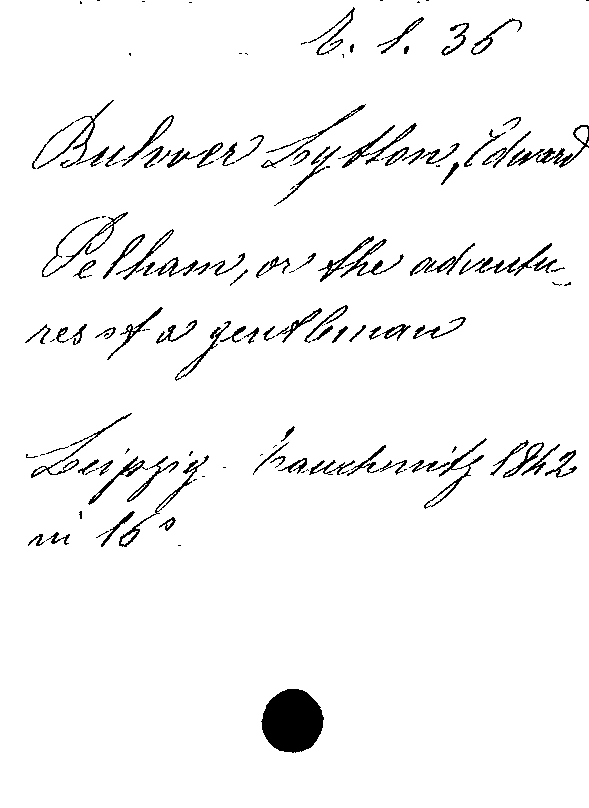 E. 1. 36
Bulwer Lytton, Edward
Pelham, or the adventu-
res of a gentleman
Leipzig Tauchnitz 1842
in 16°